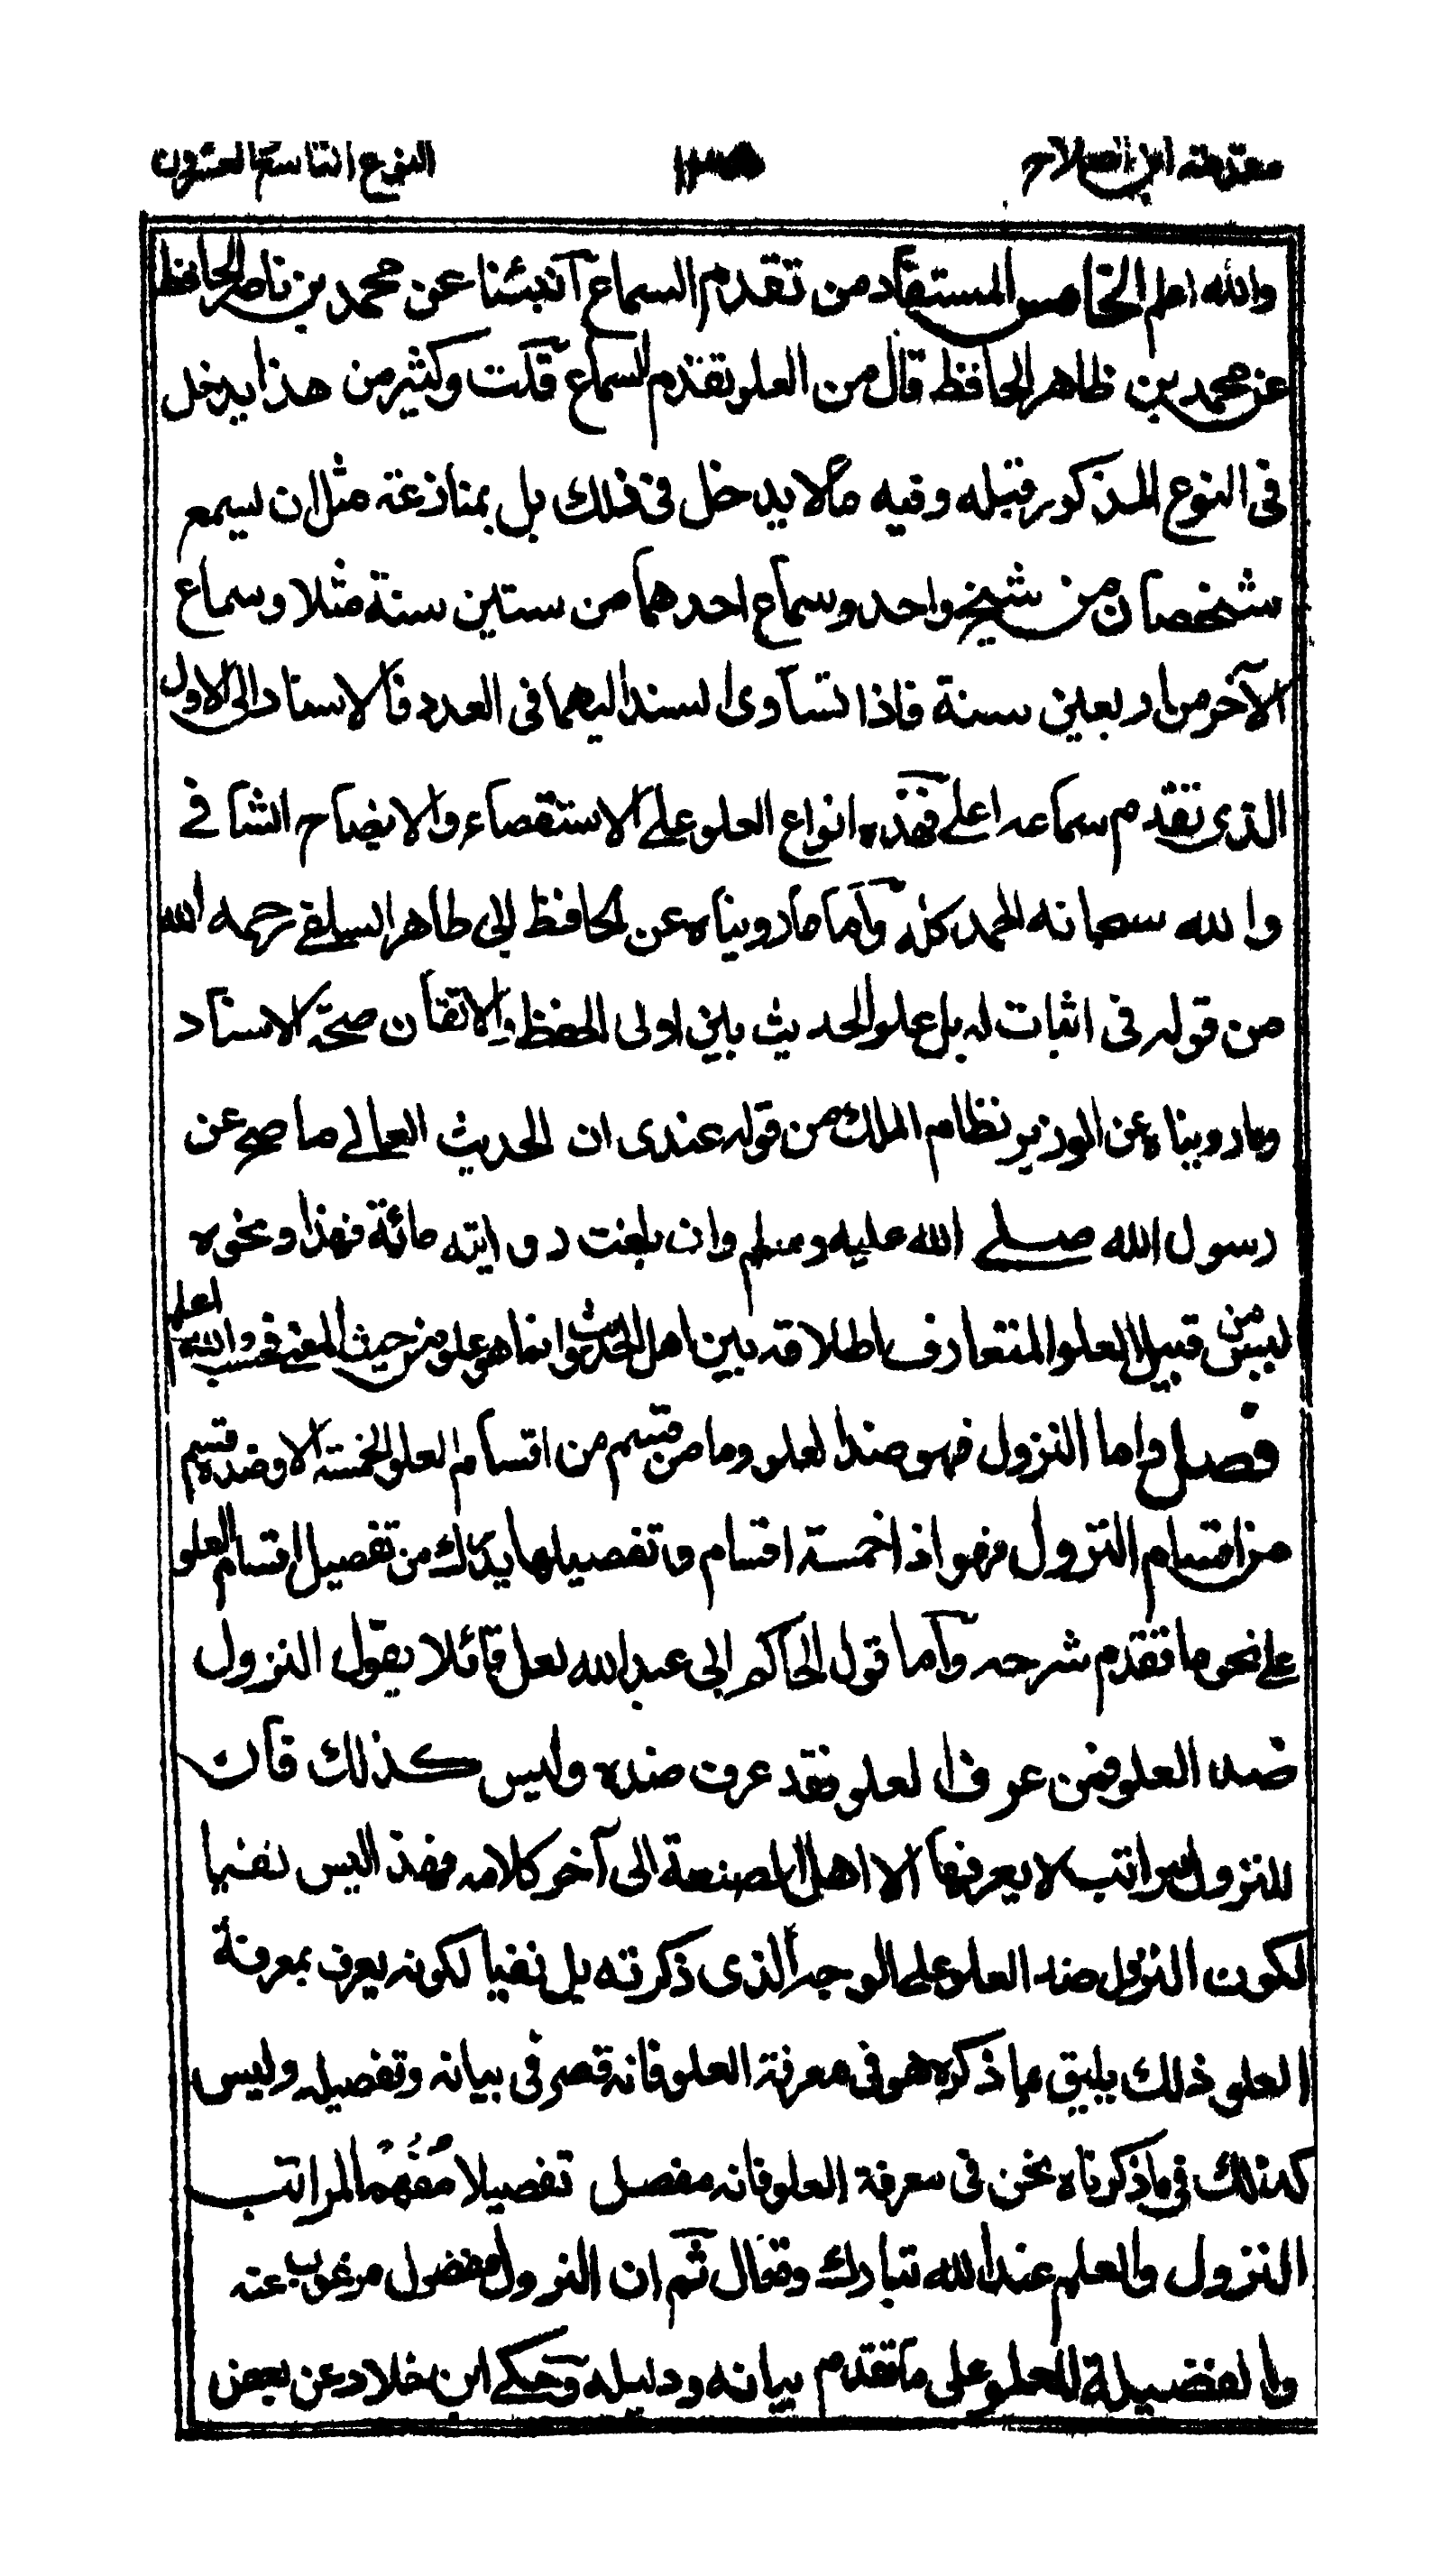 مقدمة ابن الصلاح النوع التاسع العشرون
والله اعلم الخامس المستفاد من تقدم السماع آنبئنا عن محمد بن ناصر الحافظ
عن محمد بن طاهر الحافظ قال من العلو تقدم السماع قلت وكثير من هذا يدخل
فى النوع المذكور قبله وفيه ما لا يدخل فى ذلك بل يمتاز عنه مثل ان يسمع
شخصان من شيخ واحد وسماع احدهما من ستين سنة مثلا وسماع
الآخر من اربعين سنة فاذا تساوى السند اليهما فى العدد فالاسناد الى الاول
الذى تقدم سماعه اعلى فهذه انواع العلو على الاستقصاء والايضاح الشافے
والله سبحانه الحمد كله وآما ما رويناه عن الحافظ ابى طاهر السلفے رحمه الله
من قوله فى اثبات له بل علو الحديث بين اولى الحفظ والاتقان صحة الاسناد
وما رويناه عن الوزير نظام الملك من قوله عندى ان الحديث العالے ما صح عن
رسول الله صلے الله عليه وسلم وان بلغت رواته مائة فهذا ونحوه
ليس من قبيل العلو المتعارف اطلاقه بين اهل الحديث وانما هو علو من حيث المعنے فحسب والله اعلم
فصل واما النزول فهو ضد العلو وما من قسم من اقسام العلو الخمسة الا وضده قسم
من اقسام النزول فهو اذا خمسة اقسام وتفصيلها يدرك من تفصيل اقسام العلو
علے نحو ما تقدم شرحه وآما قول الحاكم ابى عبد الله لعل قائلا يقول النزول
ضد العلو فمن عرف العلو فقد عرف ضده وليس كذلك فان
للنزول مراتب لا يعرفها الا اهل الصنعة الى آخر كلامه فهذا ليس نفيا
لكون النزول ضد العلو على الوجه الذى ذكرته بل نفيا لكونه يعرف بمعرفة
العلو ذلك يليق بما ذكره هو فى معرفة العلو فانه قصر فى بيانه وتفصيله وليس
كذلك فى ما ذكرناه نحن فى معرفة العلو فانه مفصل تفصيلا مفهما لمراتب
النزول والعلم عند الله تبارك وتعال ثم ان النزول مفضول مرغوب عنه
والفضيلة للعلو على ما تقدم بيانه ودليله وحكے ابن خلاد عن بعض